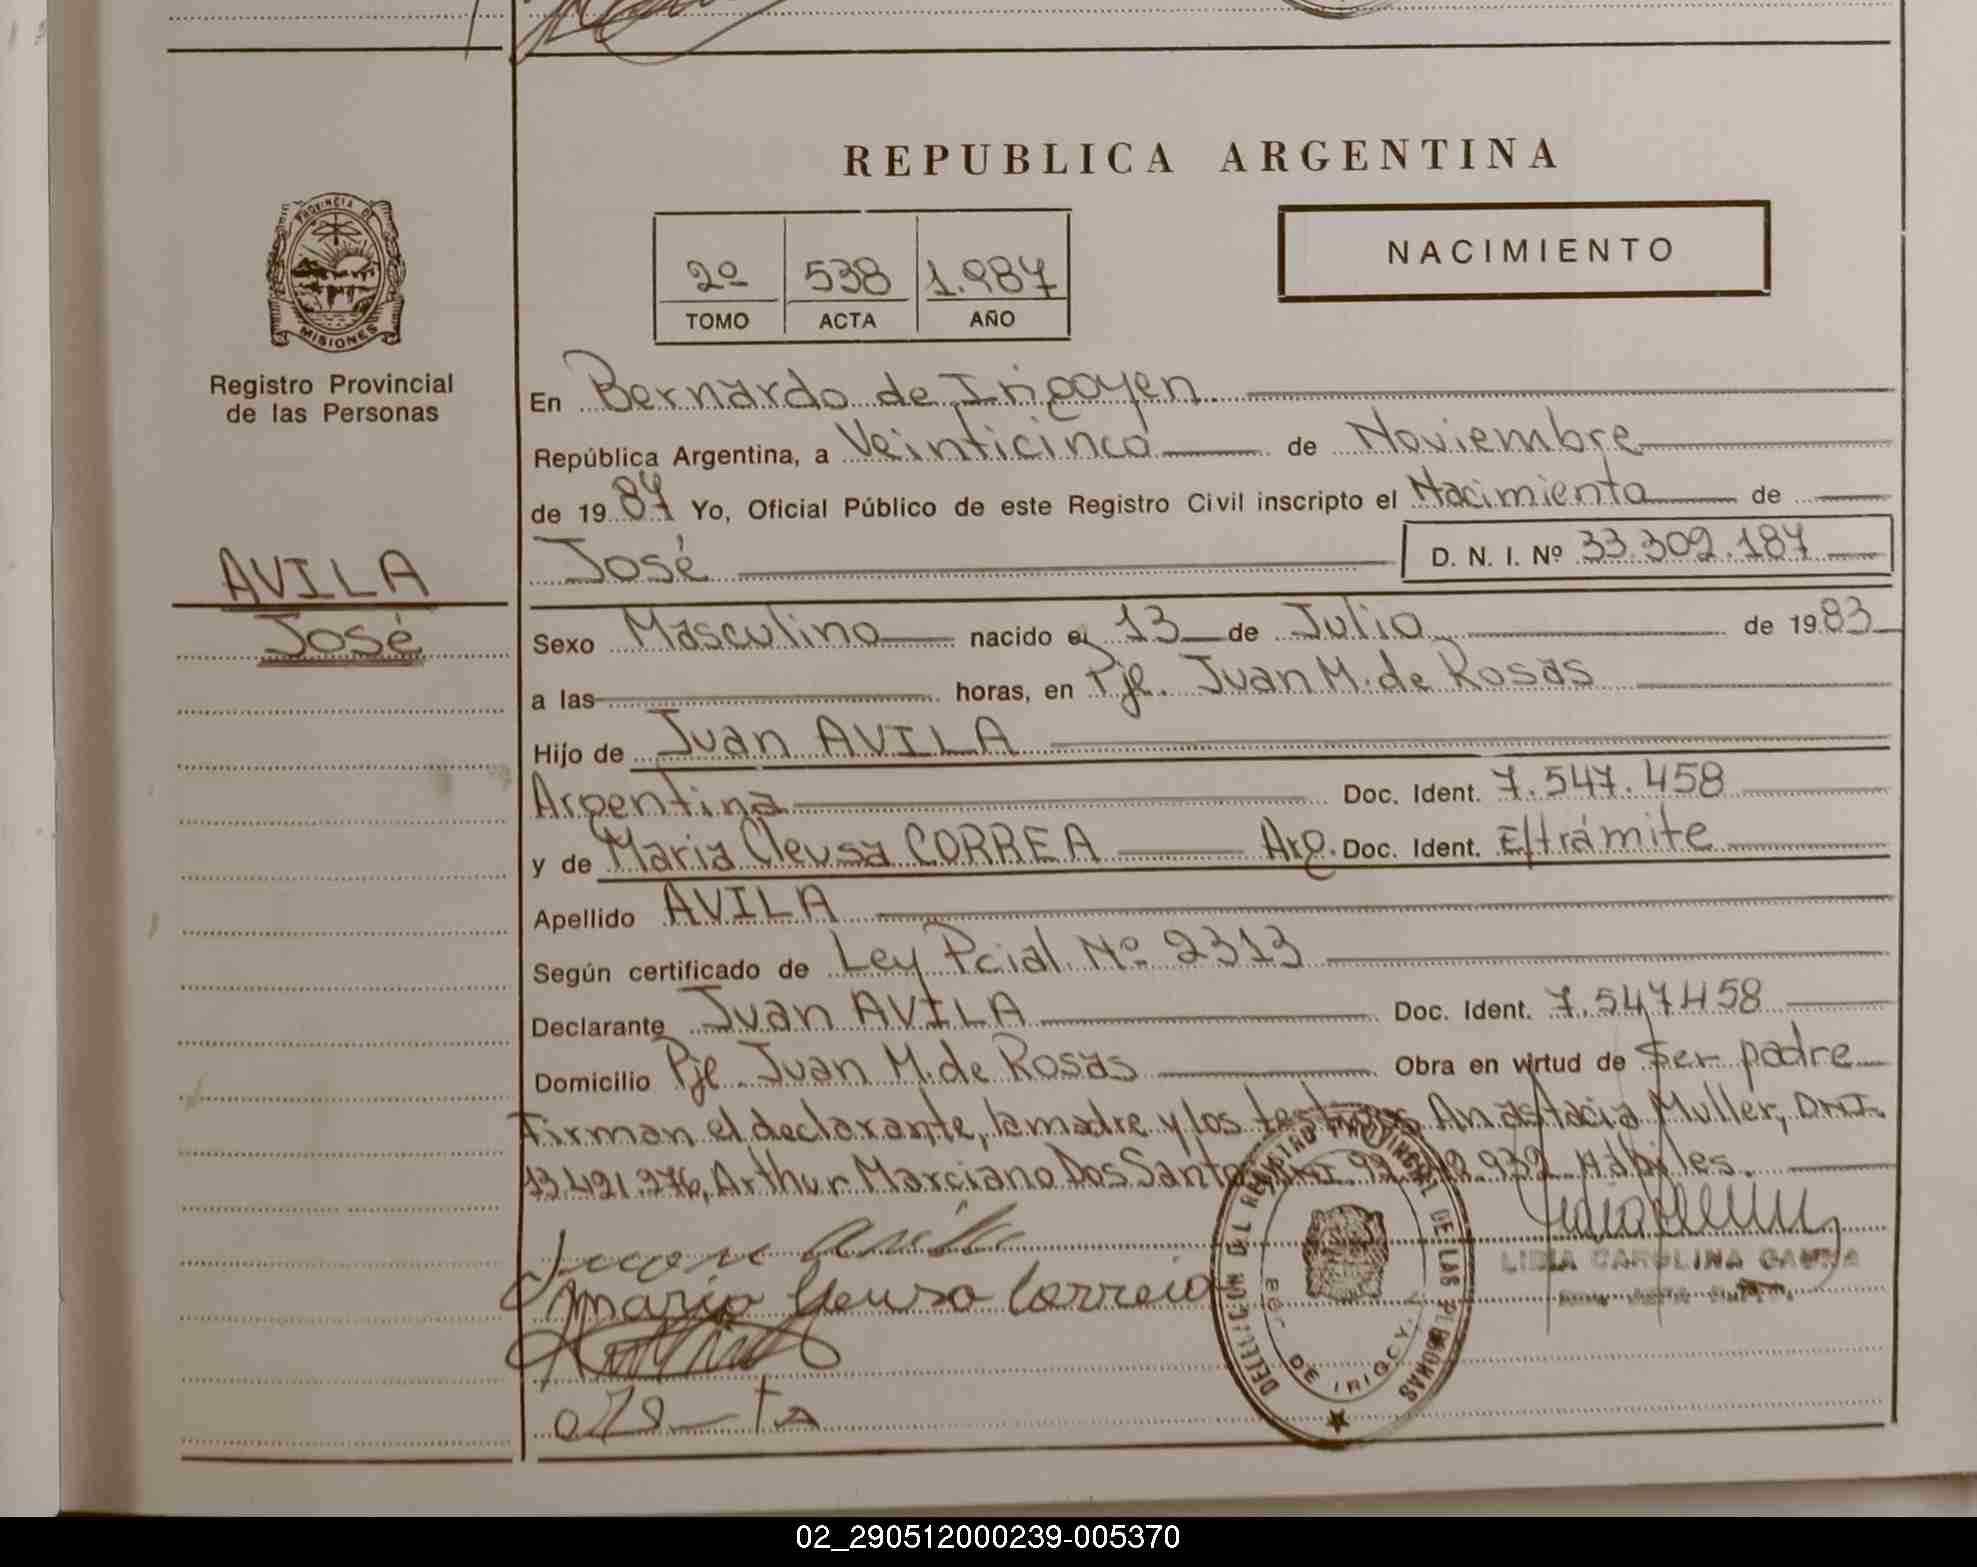 REPUBLICA ARGENTINA
PROVINCIA DE
MISIONES
Registro Provincial
de las Personas
2º 538 1.987
TOMO ACTA AÑO
NACIMIENTO
En Bernardo de Irigoyen.
República Argentina, a Veinticinco de Noviembre
de 1987 Yo, Oficial Público de este Registro Civil inscripto el Nacimiento de
José D. N. I. Nº 33.309.187
AVILA
José
Sexo Masculino nacido el 13 de Julio de 1983
a las horas, en Pje. Juan M. de Rosas
Hijo de Juan AVILA
Argentina Doc. Ident. 7.547.458
y de Maria Cleusa CORREA Arg. Doc. Ident. E/trámite
Apellido AVILA
Según certificado de Ley Pcial Nº 2313
Declarante Juan AVILA Doc. Ident. 7.547458
Domicilio Pje Juan M. de Rosas Obra en virtud de Ser padre
Firman el declarante, la madre y los testigos Anastacia Muller, D.N.I.
13.421.276, Arthur Marciano Dos Santos Hábiles.
Juan Avila
Maria Cleusa Correia
LIDIA CAROLINA
DE LAS PERSONAS
DE IRIGOY.
02_290512000239-005370